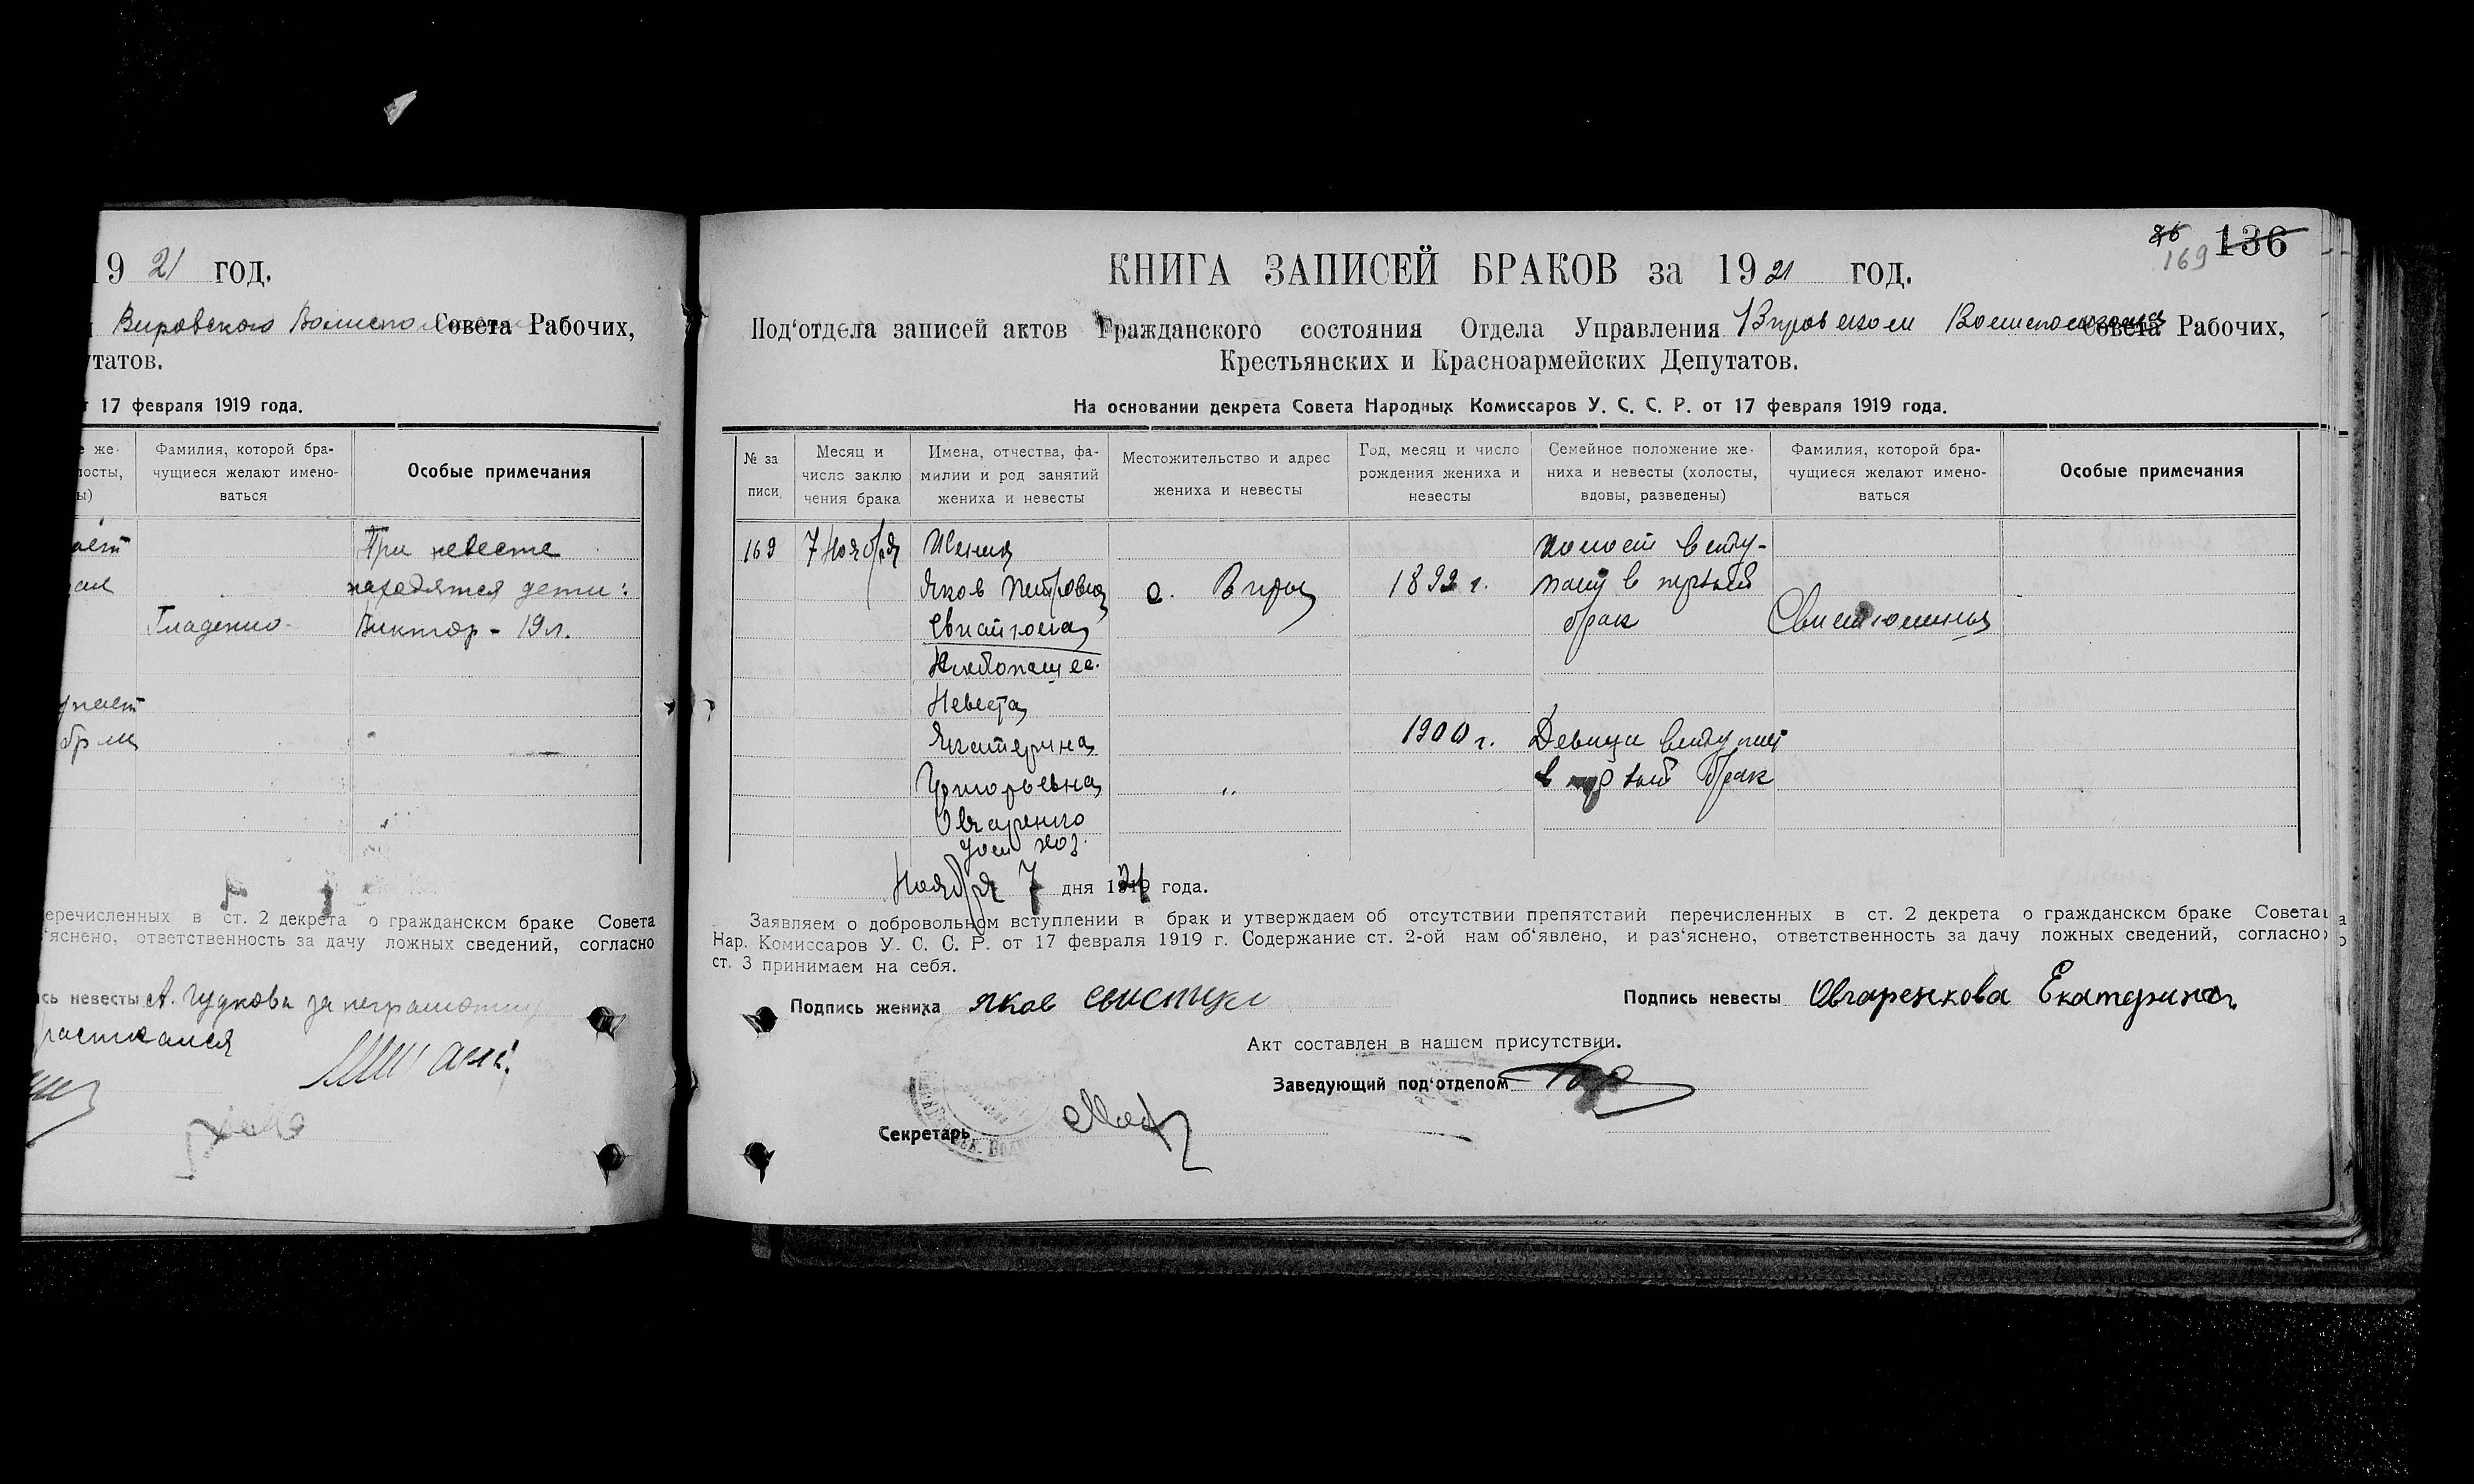 19 21 год.
Вировского Волиспол Совета Рабочих,
утатов.
17 февраля 1919 года.
е же-
лосты,
ы)
Фамилия, которой бра-
чущиеся желают имено-
ваться
Особые примечания
При невесте
находятся дети:
Гладенко
Виктор - 19 л.
еречисленных в ст. 2 декрета о гражданском браке Совета
'яснено, ответственность за дачу ложных сведений, согласно
сь невесты А. Гудкова за неграмотную
86
136
169
КНИГА ЗАПИСЕЙ БРАКОВ за 19 21 год.
Под'отдела записей актов Гражданского состояния Отдела Управления Совета Рабочих,
Крестьянских и Красноармейских Депутатов.
На основании декрета Совета Народных Комиссаров У. С. С. Р. от 17 февраля 1919 года.
№ за
писи
Месяц и
число заклю
чения брака
Имена, отчества, фа-
милии и род занятий
жениха и невесты
Местожительство и адрес
жениха и невесты
Год, месяц и число
рождения жениха и
невесты
Семейное положение же-
ниха и невесты (холосты,
вдовы, разведены)
Фамилия, которой бра-
чущиеся желают имено-
ваться
Особые примечания
169
7 Ноября
Жених
Яков Петрович
Хлебопашец
с. Виры
холост всту-
в первый
брак
Невеста
Екатерина
Григорьевна
Овчаренко
дом хоз.
"
1900 г.
Девица вступает
в первый брак
Ноября 7 дня 1921 года.
Заявляем о добровольном вступлении в брак и утверждаем об отсутствии препятствий перечисленных в ст. 2 декрета о гражданском браке Совета
Нар. Комиссаров У. С. С. Р. от 17 февраля 1919 г. Содержание ст. 2-ой нам об'явлено, и раз'яснено, ответственность за дачу ложных сведений, согласно
ст. 3 принимаем на себя.
Подпись жениха Яков
Подпись невесты Овчаренкова Екатерина
Акт составлен в нашем присутствии.
Заведующий под'отделом
Секретарь